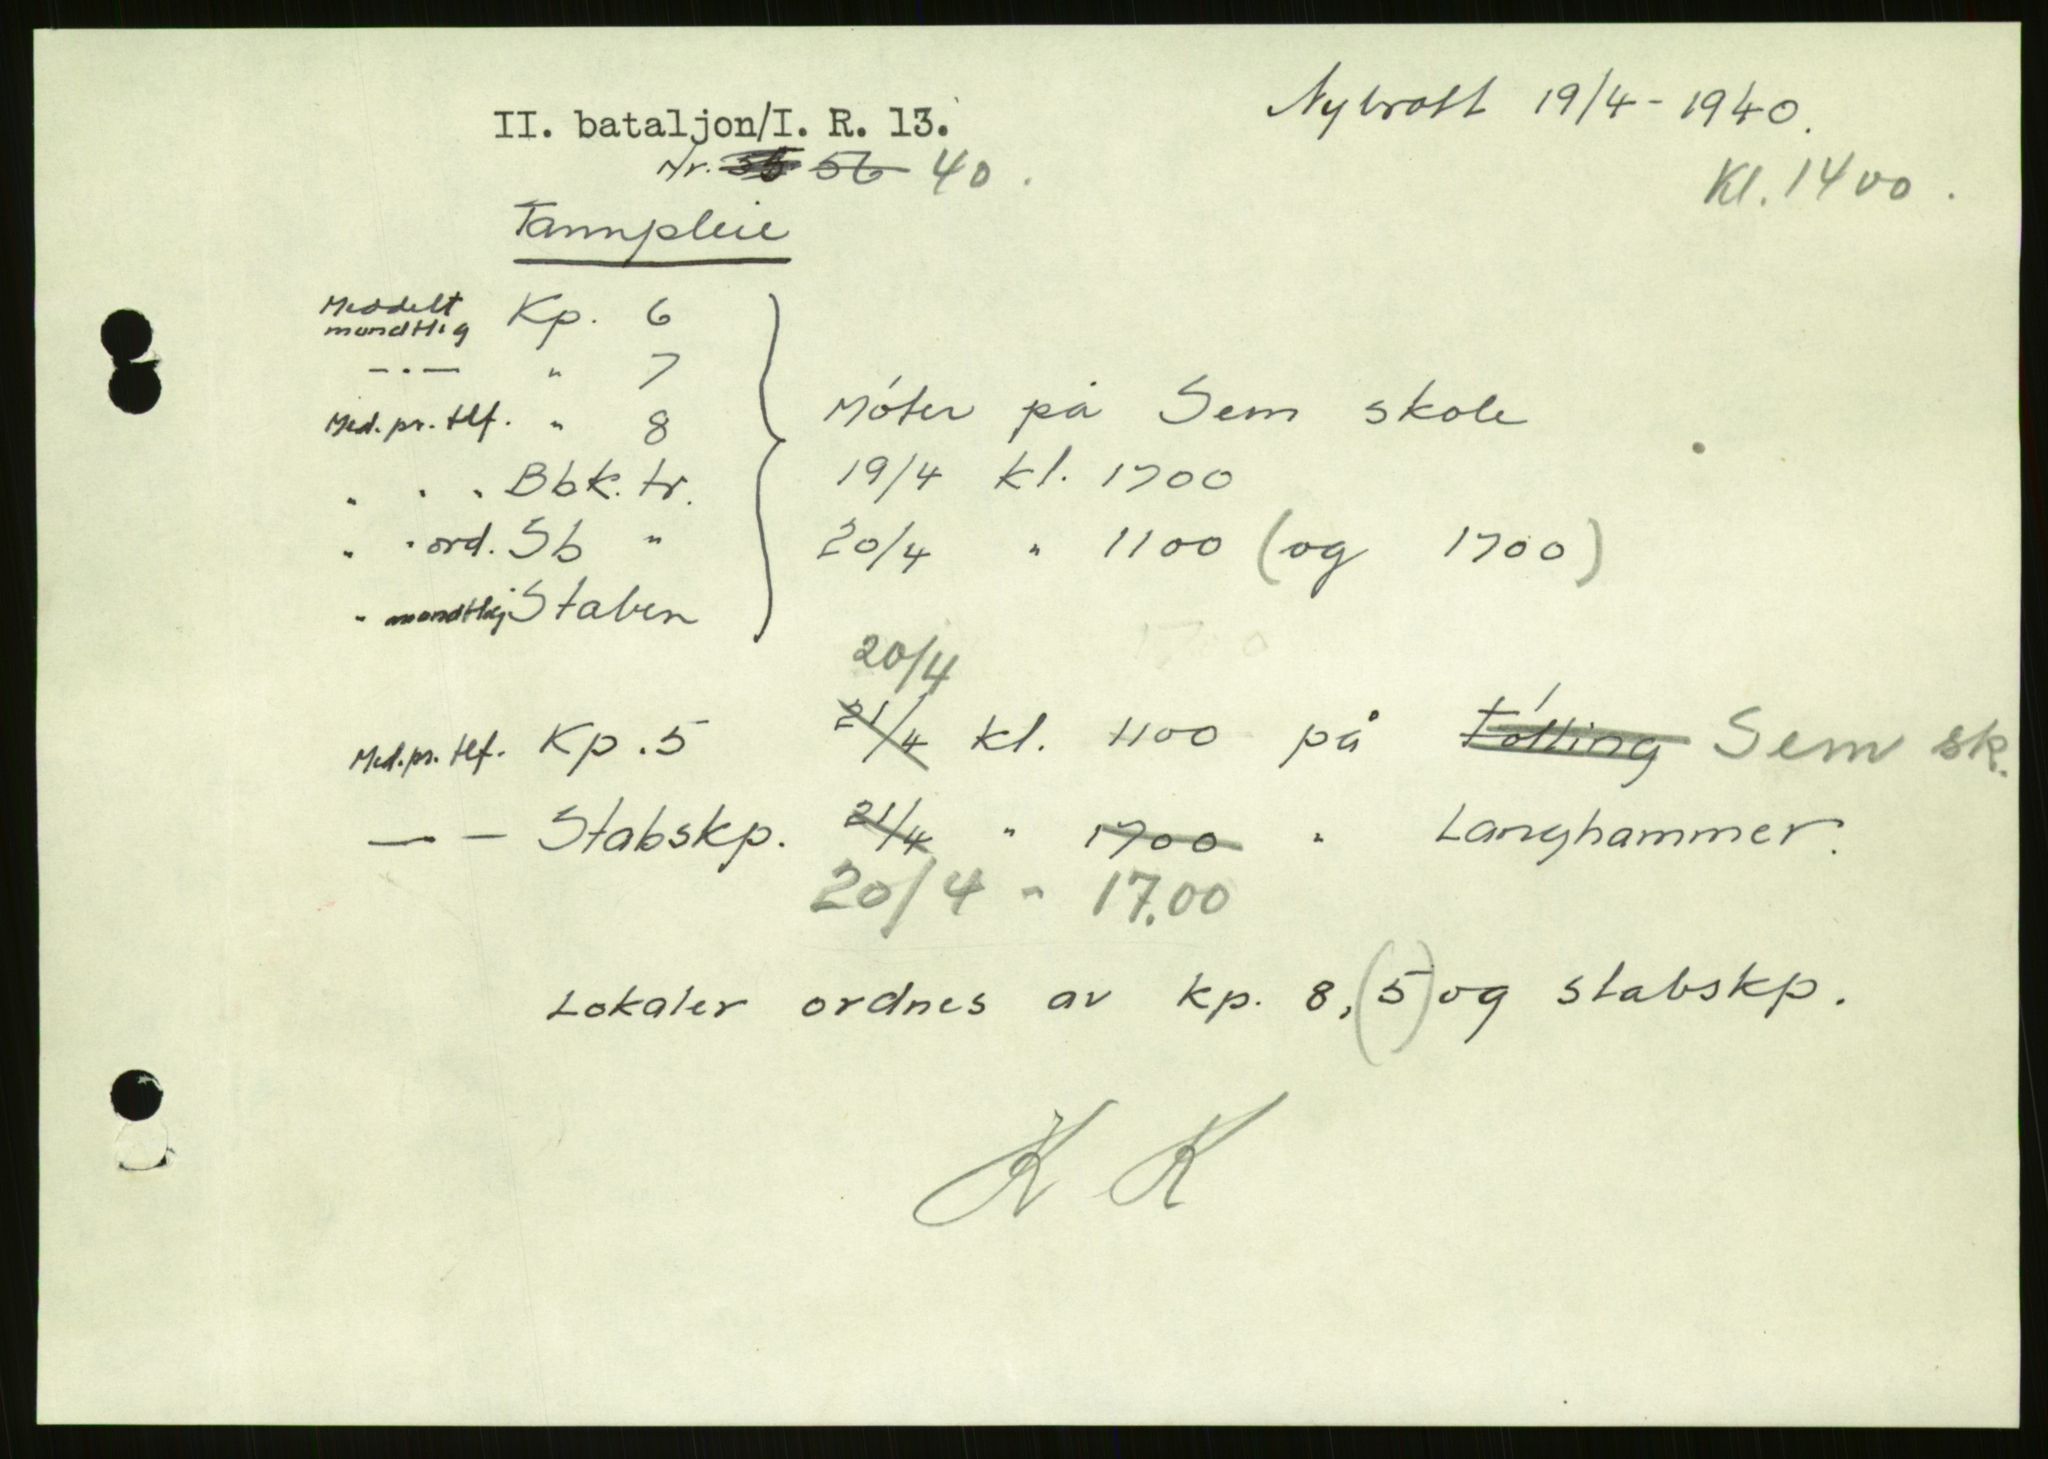 II. bataljon/I. R. 13.
Nybrott 19/4 - 1940.
Nr. 56 40.
Kl. 1400.
Tannpleie
Meddelt mundtlig Kp. 6
— · — " 7
Med. pr. tlf. " 8
Møter på Sem skole
" " " Bbk. tr.
19/4 kl. 1700
" " ord. Sb "
20/4 " 1100 (og 1700)
" mundtlig Staben
20/4
Med. pr. tlf. Kp. 5 21/4 kl. 1100 på Følling Sem sk.
— — Stabskp. 21/4 " 1700 " Langhammer.
20/4 - 17.00
Lokaler ordnes av kp. 8, (5) og stabskp.
K K